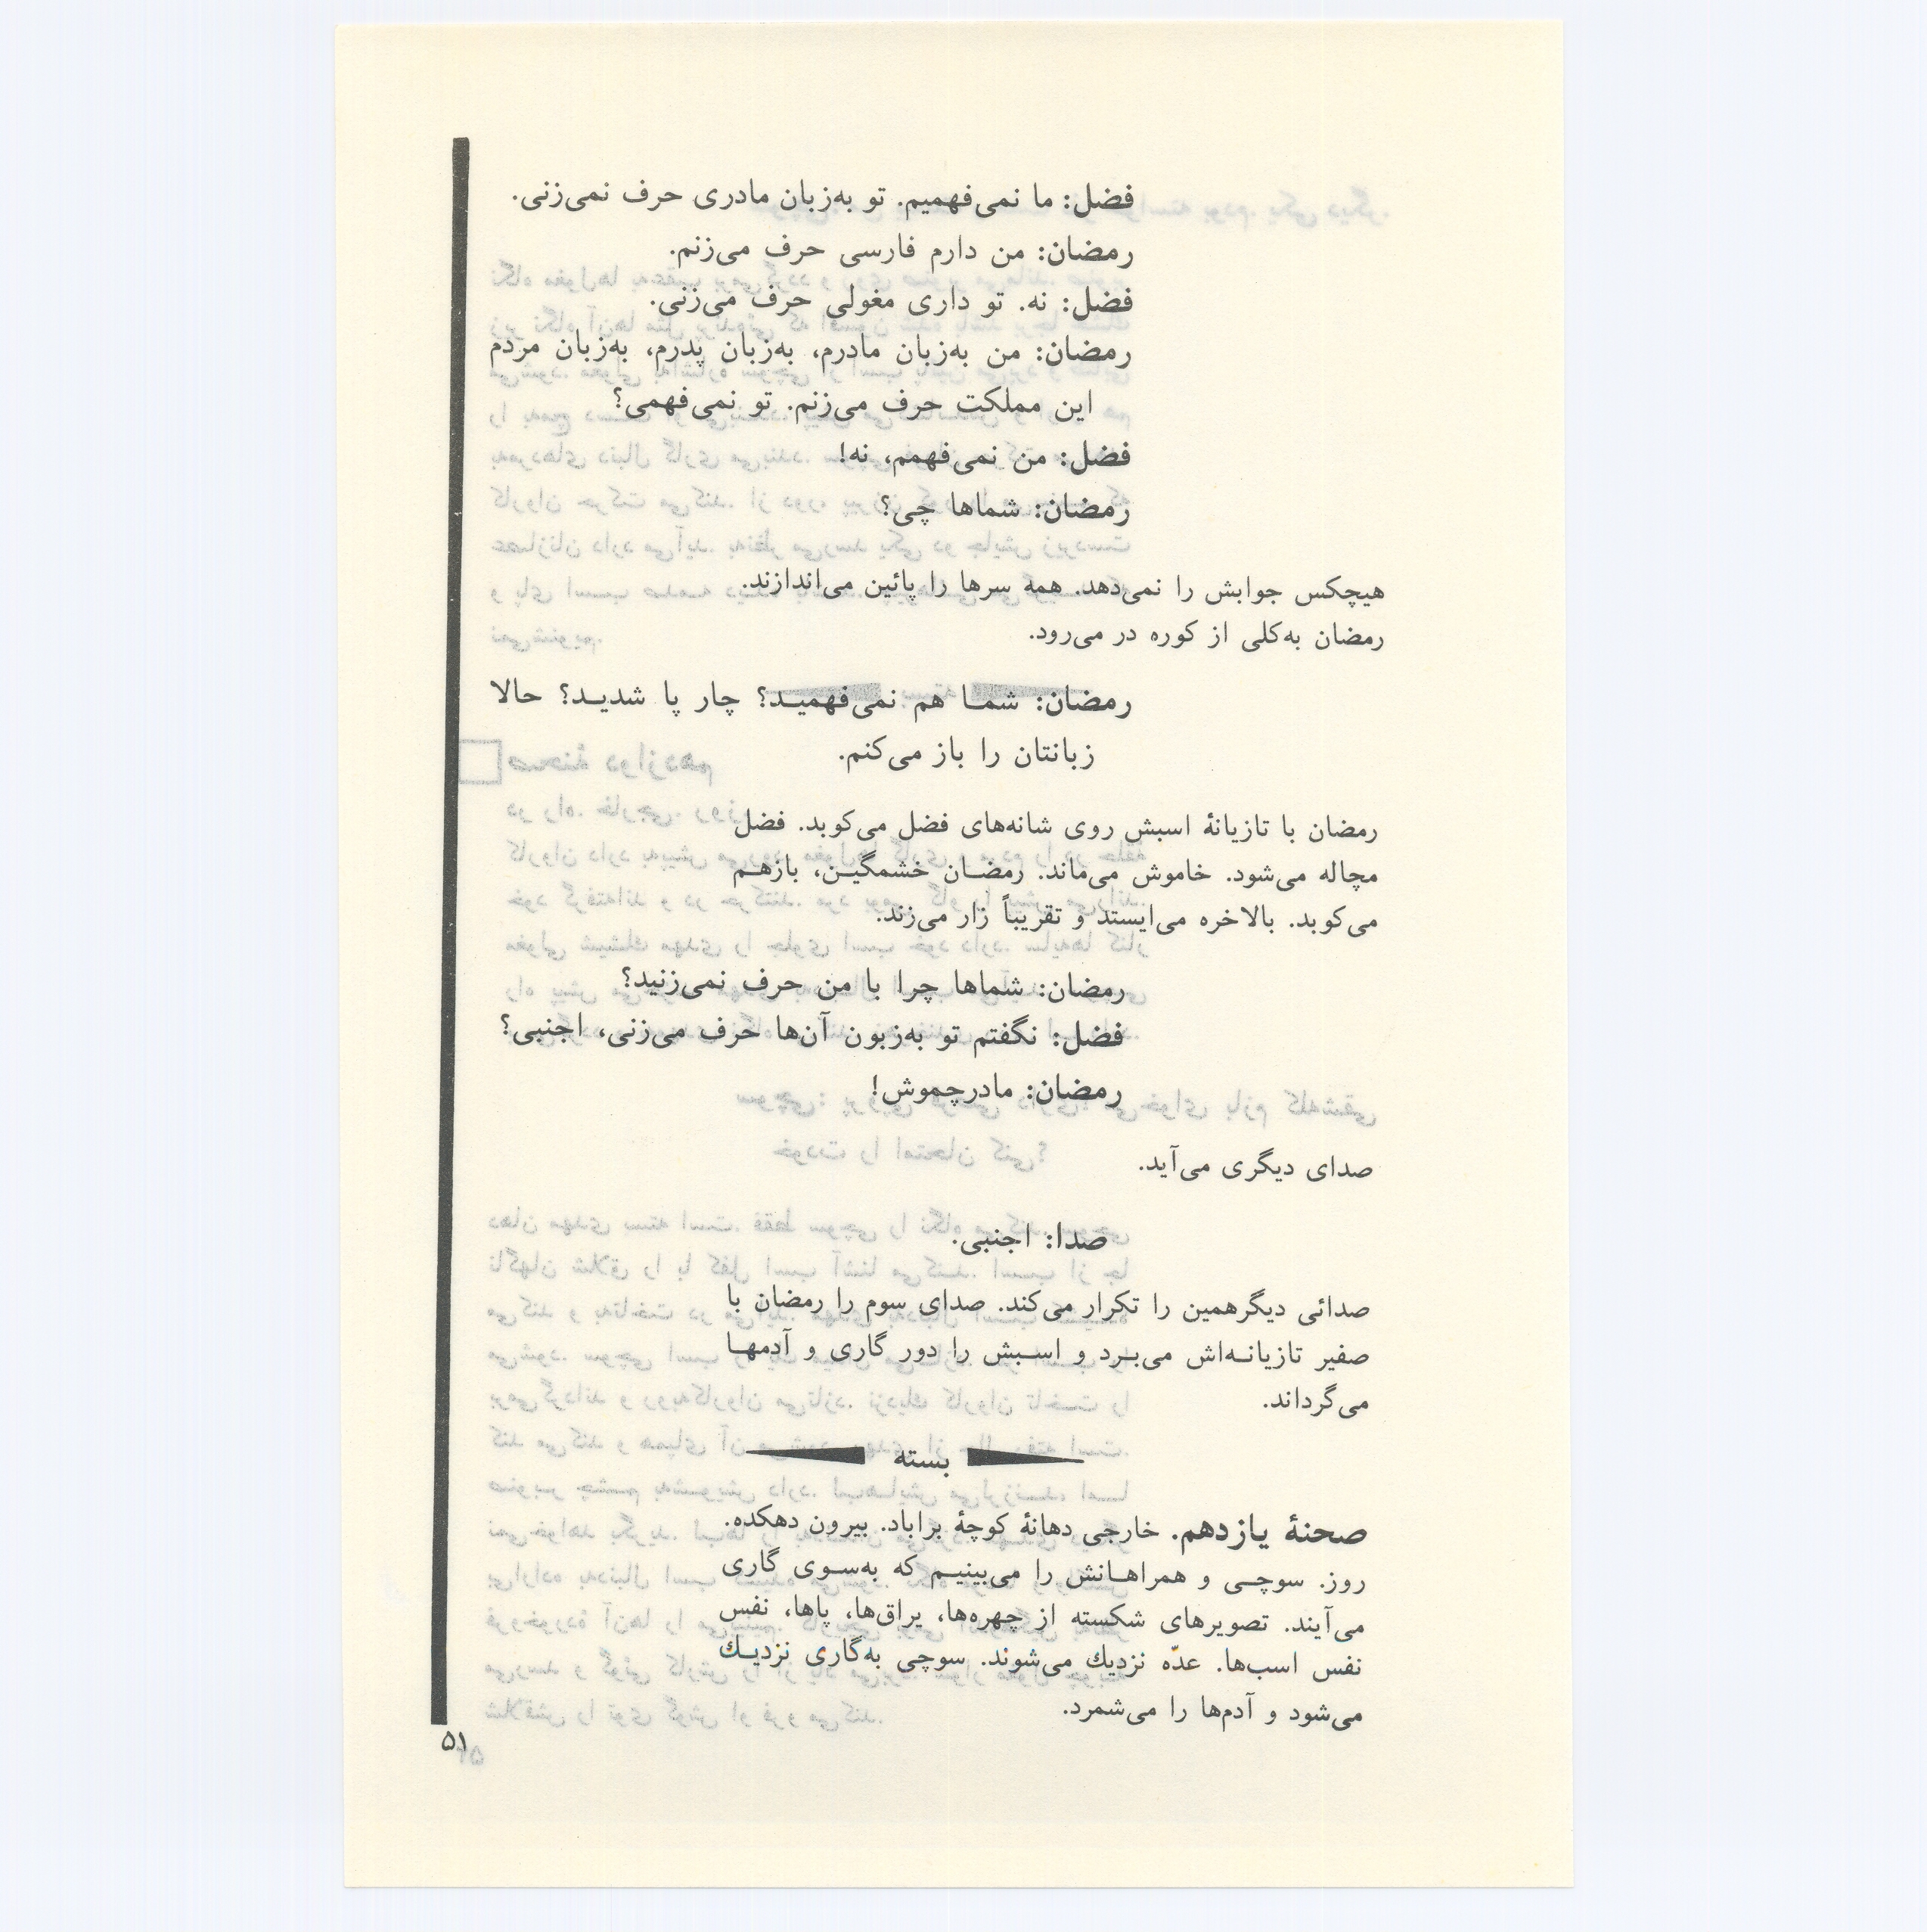 فضل: ما نمی‌فهمیم. تو به‌زبان مادری حرف نمی‌زنی.
رمضان: من دارم فارسی حرف می‌زنم.
فضل: نه. تو داری مغولی حرف می‌زنی.
رمضان: من به‌زبان مادرم، به‌زبان پدرم، به‌زبان مردم
این مملکت حرف می‌زنم. تو نمی‌فهمی؟
فضل: من نمی‌فهمم، نه!
رمضان: شماها چی؟
هیچکس جوابش را نمی‌دهد. همه سرها را پائین می‌اندازند.
رمضان به‌کلی از کوره در می‌رود.
رمضان: شمـا هم نمی‌فهمیـد؟ چار پا شدیـد؟ حالا
زبانتان را باز می‌کنم.
رمضان با تازیانهٔ اسبش روی شانه‌های فضل می‌کوبد. فضل
مچاله می‌شود. خاموش می‌ماند. رمضـان خشمگیـن، بازهـم
می‌کوبد. بالاخره می‌ایستد و تقریباً زار می‌زند.
رمضان: شماها چرا با من حرف نمی‌زنید؟
فضل: نگفتم تو به‌زبون آن‌ها حرف می‌زنی، اجنبی؟
رمضان: مادرچموش!
صدای دیگری می‌آید.
صدا: اجنبی.
صدائی دیگرهمین را تکرار می‌کند. صدای سوم را رمضان با
صفیر تازیانـه‌اش می‌بـرد و اسـبش را دور گاری و آدمهـا
می‌گرداند.
بسته
صحنهٔ یازدهم. خارجی دهانهٔ کوچهٔ براباد. بیرون دهکده.
روز. سوچـی و همراهـانش را می‌بینیـم که به‌سـوی گاری
می‌آیند. تصویرهای شکسته از چهره‌ها، یراق‌ها، پاها، نفس
نفس اسب‌ها. عدّه نزدیك می‌شوند. سوچی به‌گاری نزدیـك
می‌شود و آدم‌ها را می‌شمرد.
۵۱